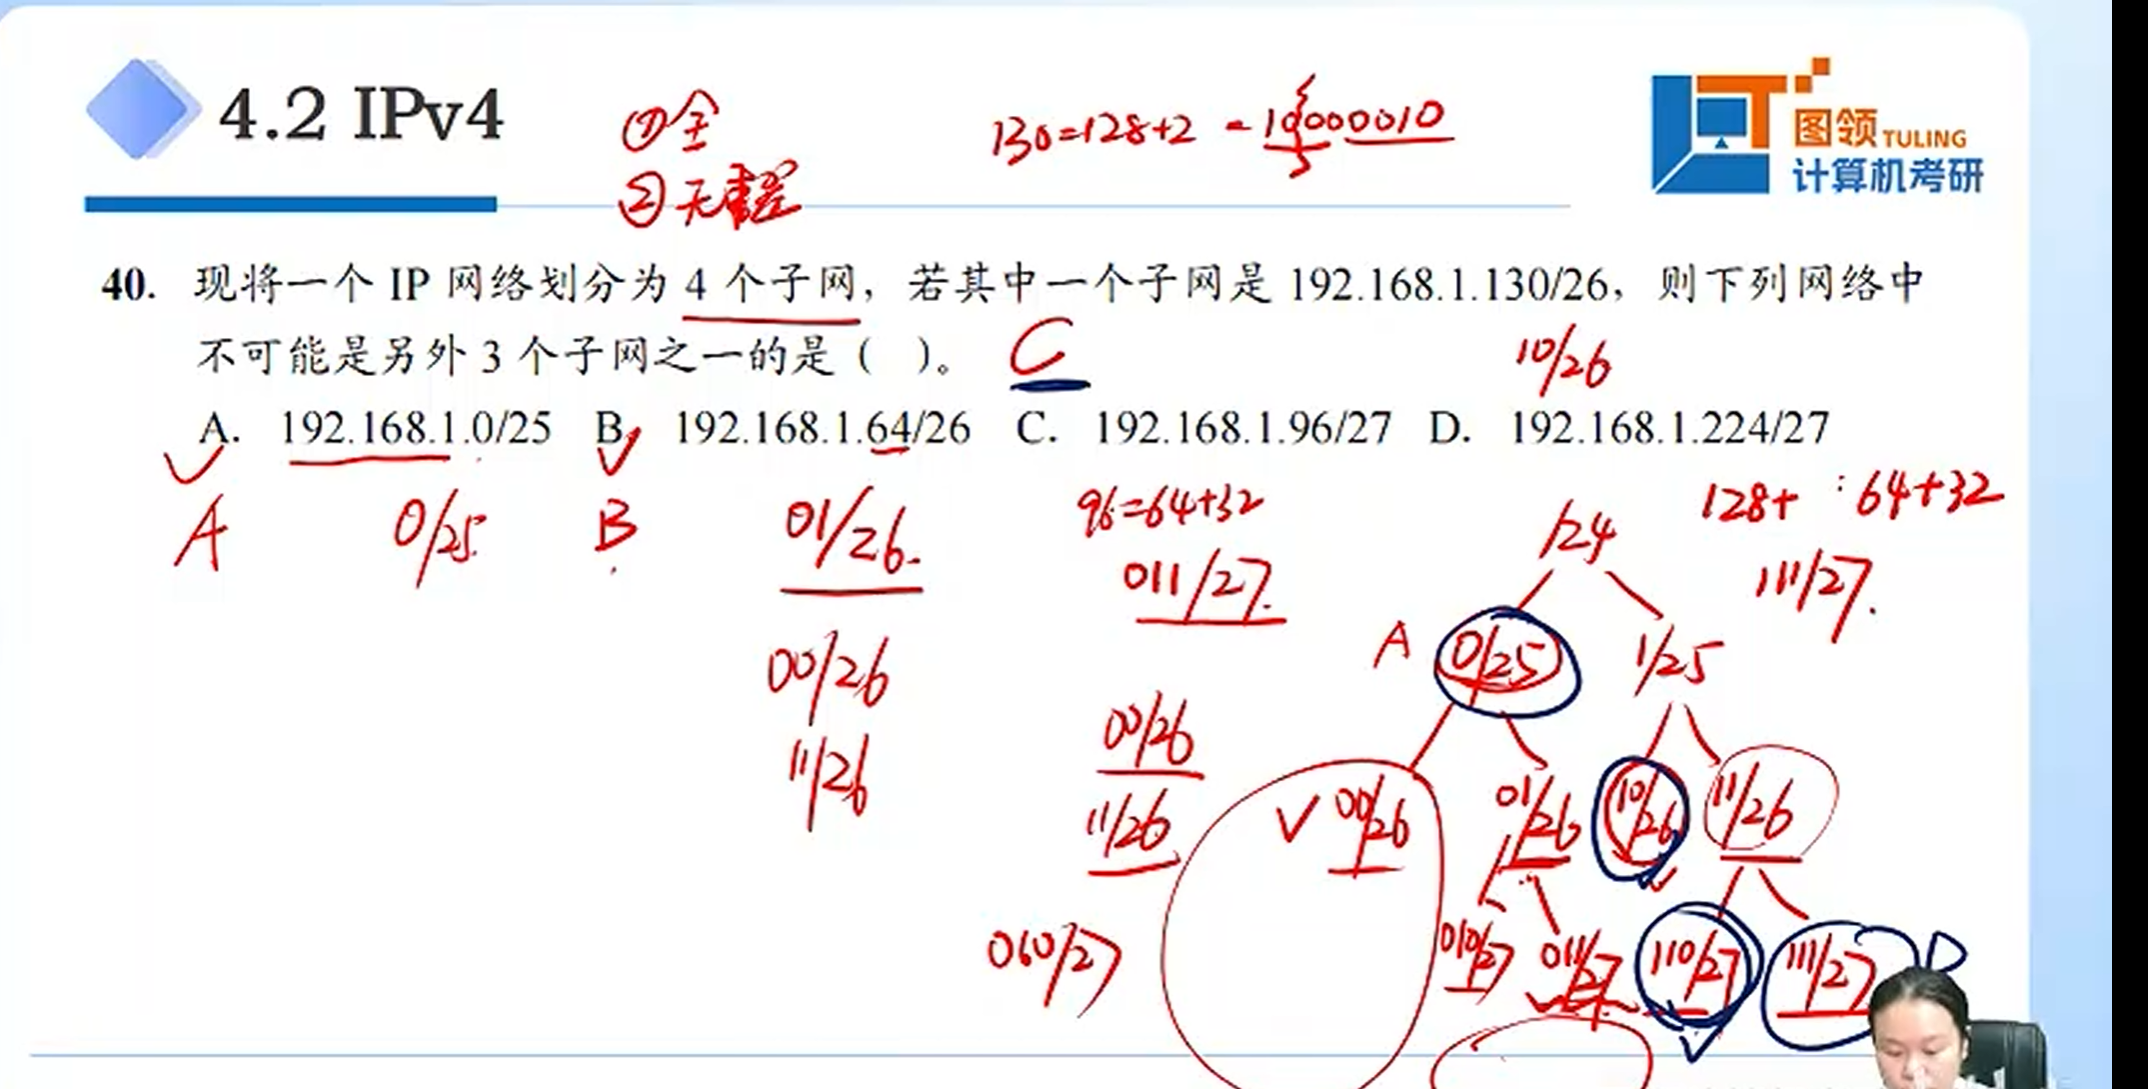 4.2 IPv4
①全
②无重叠
130=128+2 = 10000010
图领 TULING
计算机考研
40. 现将一个 IP 网络划分为 4 个子网，若其中一个子网是 192.168.1.130/26，则下列网络中
不可能是另外 3 个子网之一的是（ ）。 C
10/26
A. 192.168.1.0/25 B. 192.168.1.64/26 C. 192.168.1.96/27 D. 192.168.1.224/27
A 0/25 B 01/26.
96=64+32
011/27.
/24
128+ :64+32
111/27.
00/26
11/26
00/26
11/26
010/27
A 0/25 1/25
00/26 01/26 10/26 11/26
010/27 011/27 110/27 111/27 D